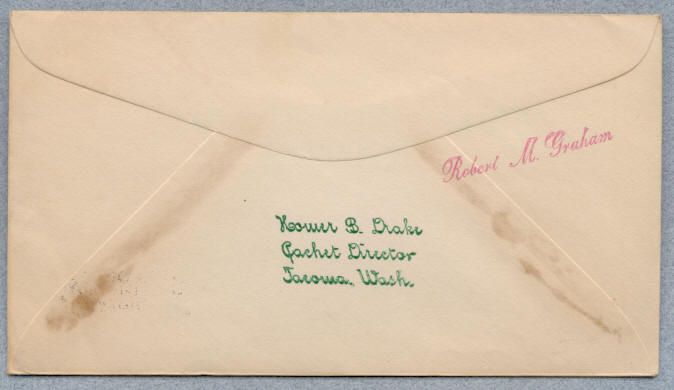 Robert M. Graham
Homer B. Drake
Cachet Director
Tacoma, Wash.